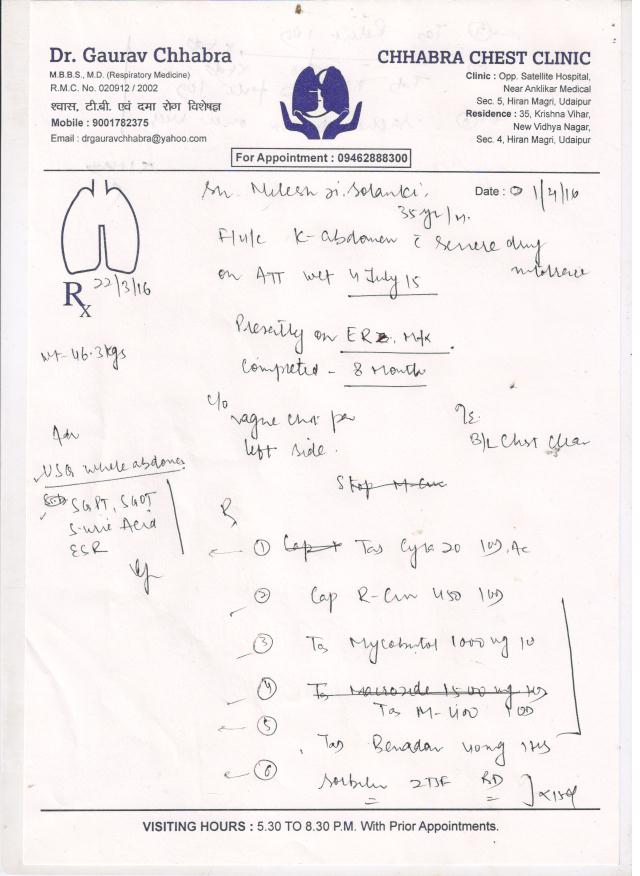 Dr. Gaurav Chhabra
M.B.B.S., M.D. (Respiratory Medicine)
R.M.C. No. 020912 / 2002
श्वास, टी.बी. एवं दमा रोग विशेषज्ञ
Mobile : 9001782375
Email : drgauravchhabra@yahoo.com
CHHABRA CHEST CLINIC
Clinic : Opp. Satellite Hospital,
Near Anklikar Medical
Sec. 5, Hiran Magri, Udaipur
Residence : 35, Krishna Vihar,
New Vidhya Nagar,
Sec. 4, Hiran Magri, Udaipur
For Appointment : 09462888300
Solanki.
Date : 1/4/16
35 yr/m.
F/u/c K-abdomen c severe drug
on ATT wef 4 July 15
intolerance
Rx 22/3/16
Presently on
wt- 46.3 kgs
Completed - 8 Month
c/o
vague chest pain
left side.
B/L Chest Clear
Adv
USG whole abdomen
SGPT, SGOT
S-uric Acid
ESR
Stop
① Cap Tab Cyra 20 1OD, AC
② Cap R-Cin 450 1OD
③ Tab Mycobutol 1000 mg
④ Tab 1500 mg
Tab M-400 1OD
⑤ Tab Benadon 40mg
⑥ 2TSF BD
VISITING HOURS : 5.30 TO 8.30 P.M. With Prior Appointments.